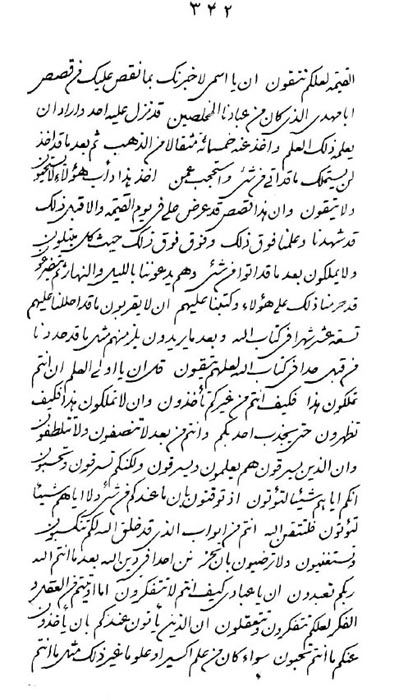 ٣٤٢
القيمة لعلكم تتقون ان يا اسمي لاخبرنك بما نقص عليك في قصص
ابا مهدي الذي كان من عبادنا المخلصين قد نزل عليه احد و اراد ان
يعلمه ذلك العلم واخذ عنه خمسمائة مثقالا من الذهب ثم بعد ما قد اخذ
لن يستملك ما قد اتى من شئ و استحجب عمن اخذ هذا دأب هؤلاء لا يستحيون
ولا يتقون وان هذا نقصص قد عرض علي في يوم القيمة والا قبل ذلك
قد شهدنا وعلمنا فوق ذلك وفوق فوق ذلك حيث كل يبتلون
ولا يملكون بعد ما قد اتوا من شئ وهم يدعوننا بالليل والنهار ثم يتضرعون
قد حرمنا ذلك على هؤلاء وكتبنا عليهم ان لا يقربون ما قد احللنا عليهم
تسعة عشر شهرا في كتاب الله وبعد ما يريدون يلزمنهم مثل ما قد حددنا
من قبل حدا في كتاب الله لعلهم يتقون قل ان يا اولي العلم ان انتم
تملكون هذا فكيف انتم من غيركم تأخذون وان لا تملكون هذا فكيف
تظهرون حتى يجذب احد بكم وانتم من بعد لا تنصفون ولا تلطفون
وان الذين يسرقون هم يعلمون ويسرقون ولكنكم تسرقون وتحسبون
انكم اياهم شيئا لتؤتون اذ توقنون بان ما عندكم من شئ ولا اياهم شيئا
لتؤتون فلتتقن الله انتم من ابواب الذي قد خلق الله لكم تكسبون
و تستغنيون ولا ترضيون بان يحزنن من احد في دين الله بعد ما انتم الله
ربكم تعبدون ان يا عبادي كيف انتم لا تتفكرون اما اوتيتم من العقل و
الفكر لعلكم تتفكرون وتتعقلون ان الذين يأتون عندكم بان يأخذون
عنكم ما انتم تحبون سواء كان من علم اكسير او علوم غير ذلك مثل ما انتم